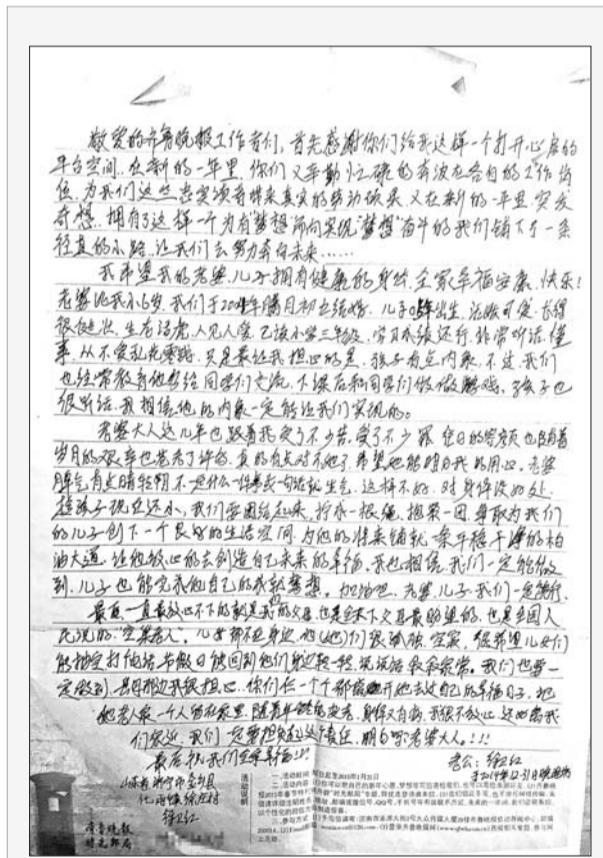 敬爱的齐鲁晚报工作者们，首先感谢你们给我这样一个打开心扉的
平台空间。在新的一年里，你们又辛勤忙碌的奔波在各自的工作岗
位，为我们这些忠实读者带来真实的劳动成果，又在新的一年里突发
奇想，拥有了这样一个为有"梦想"而向实现"梦想"奋斗的我们铺下了一条
径直的小路，让我们去努力奔向未来……
我希望我的老婆、儿子拥有健康的身体，全家幸福安康、快乐！
老婆比我小6岁，我们于年腊月初五结婚，儿子年出生，活泼可爱，长得
很健壮，生龙活虎，人见人爱，已读小学三年级，学习成绩还行，非常听话，懂
事，从不爱乱花零钱，只是最让我担心的是，孩子有点内向，不过，我们
也经常教育他多给同学们交流，下课后和同学们做做游戏，孩子也
很听话，我相信，他的内向一定能让我们实现的。
老婆大人这几年也跟着我受了不少苦，受了不少罪，往日的容颜也随着
岁月的艰辛也苍老了许多，真的有点对不起她了，希望她能明白我的用心。老婆
脾气有点晴转阴，不一定什么一件事或一句话就生气，这样不好，对身体没好处，
趁孩子现在还小，我们要团结起来，拧成一根绳，抱紧一团，争取为我们
的儿子创下一个良好的生活空间，为他的将来铺就一条平稳干净的柏
油大道，让他放心的去创造自己未来的幸福，我也相信，我们一定能做
到，儿子也能完成他自己的成就梦想。加油吧，老婆、儿子，我们一定能行。
最后，一直最放心不下的就是我的父母，也是天下父母最盼望的，也是全国人
民说的"空巢老人"。儿女都不在身边，他(她)们很孤独、空寂，很希望儿女们
能抽空打电话与假日能回到他们身边聚一聚，说说话，余余家常。我们也要一
定做到，岳母那边我很担心，你们仨一个个都离开她去过自己的幸福日子，把
她老人家一个人留在家里，随着年龄的变老，身体又有病，我很不放心，还好离我
们家近，我们一定要担负起这个责任，明白吗老婆大人。!!!
最后祝我们全家幸福!!!
老公：徐卫红
于2014年12.31日晚
山东省济宁市金乡县
化雨镇徐庄村
徐卫红
齐鲁晚报
时光邮局
活动说明